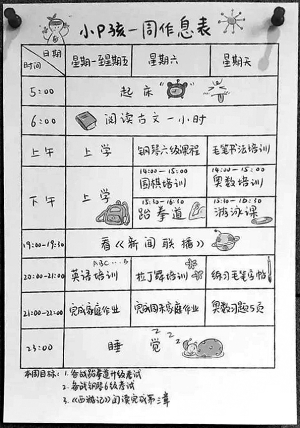 小P孩一周作息表
日期
时间
星期一至星期五 星期六 星期天
5:00 起床
6:00 阅读古文一小时
上午 上学 钢琴六级课程 毛笔书法培训
下午 上学 14:00-15:00 围棋培训 14:00-15:00 奥数培训
15:10-16:30 跆拳道 15:10-16:30 游泳课
19:00-19:30 看《新闻联播》
ABC...
20:00-21:00 英语培训 拉丁舞培训 练习毛笔字帖
21:00-22:00 完成家庭作业 完成周末家庭作业 奥数习题5页
23:00 睡觉 ZZZ
本周目标: 1. 备战跆拳道升级考试
2. 备战钢琴6级考试
3.《西游记》阅读完成第三章